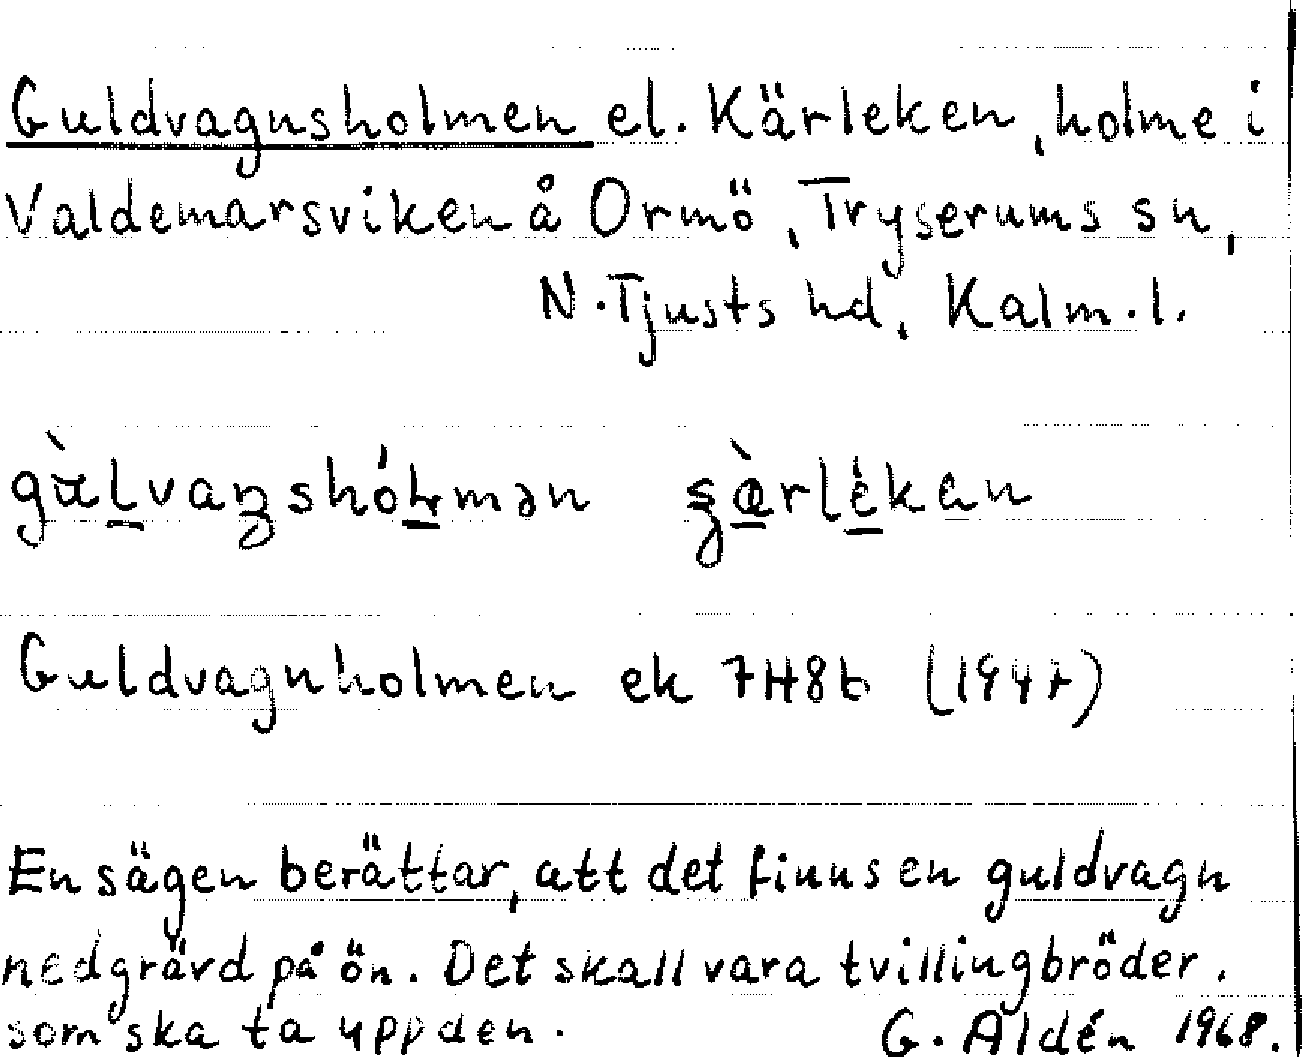 Guldvagnsholmen el. Kärleken, holme i
Valdemarsviken å Ormö, Tryserums sn,
N. Tjusts hd, Kalm. l.
Guldvagnholmen ek 7H8b (1947)
En sägen berättar, att det finns en guldvagn
nedgrävd på ön. Det skall vara tvillingbröder.
som ska ta upp den.
G. Aldén 1968.